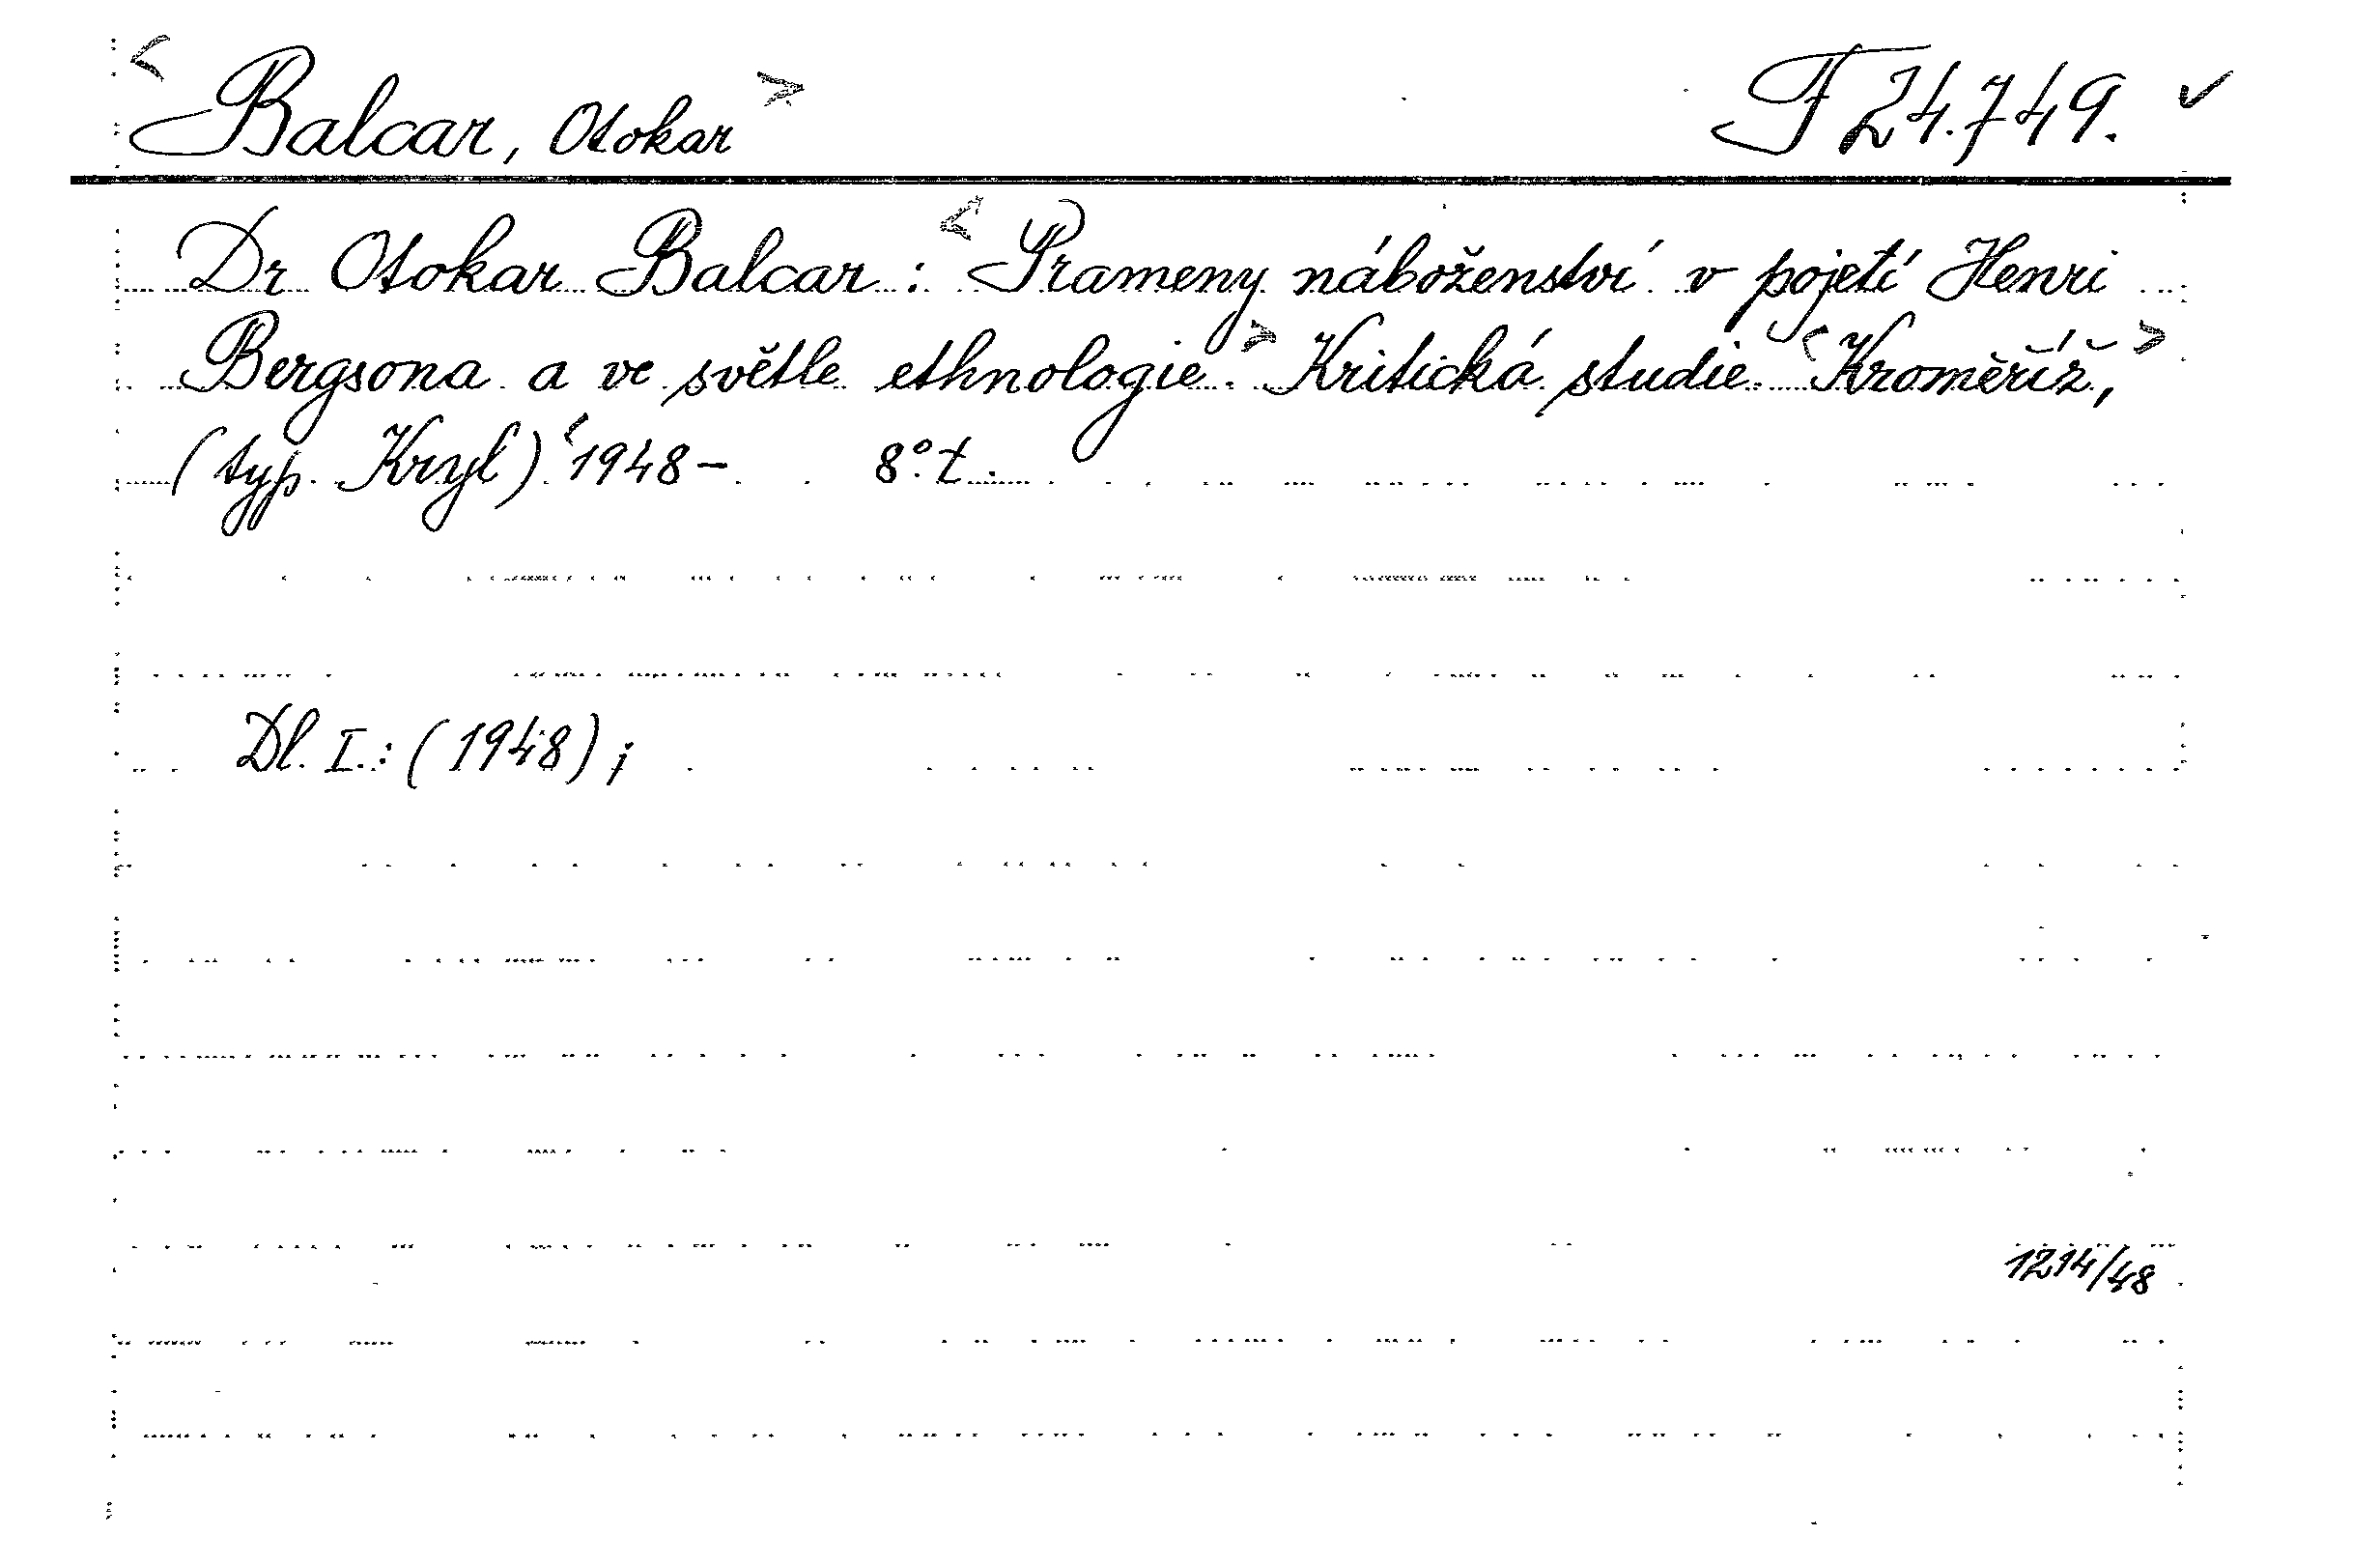 <Balcar, Otokar> F 24.749. ✓
Dr Otokar Balcar: <Prameny náboženství v pojetí Henri
Bergsona a ve světle ethnologie.> Kritická studie. <Kroměříž,>
(typ. Kryl) <1948– 8°. t.
Dl. I.: (1948);
1214/48